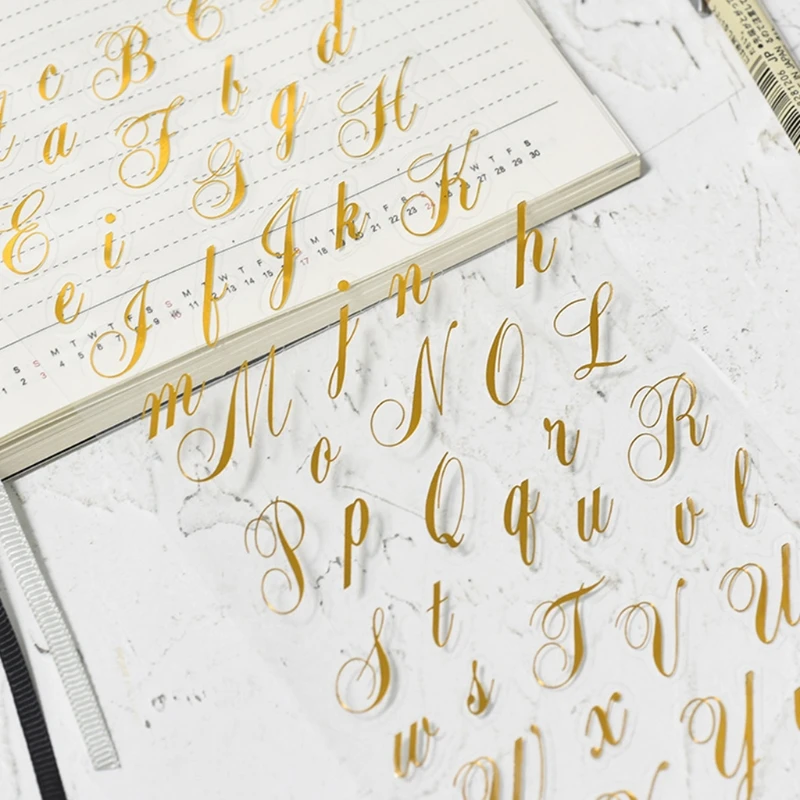 c B C
d
b
a F g H
E i G
S M T W T F S
1 2 3 4 5 6 7 8 9 10 11 12 13 14 15 16 17 18 19 20 21 22 23 24 25 26 27 28 29 30
e I f J k K
j n h
m M N O L
o r R
P p Q q u v l
S t T V U
w s x Y
JP